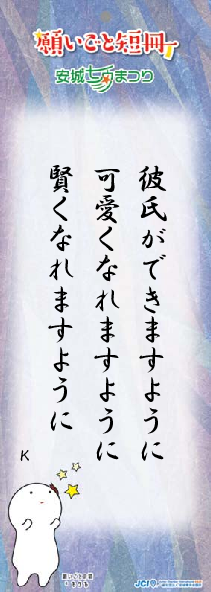 願いごと短冊
安城七夕まつり
彼氏ができますように
可愛くなれますように
賢くなれますように
K
JCI